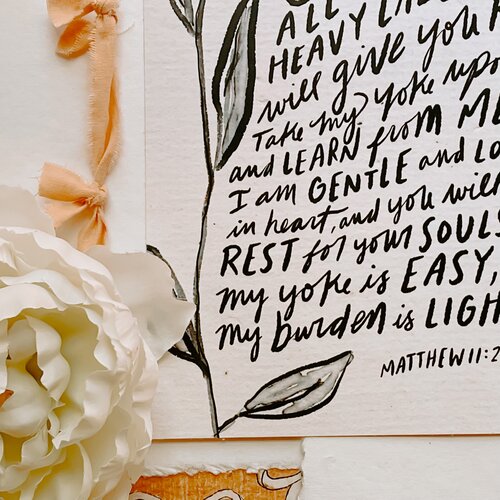 ALL
HEAVY LA
will give you
Take my yoke upo
and LEARN from ME
I am GENTLE and LO
in heart, and you will
REST for your SOULS
my yoke is EASY,
my burden is LIGH
MATTHEW 11:2